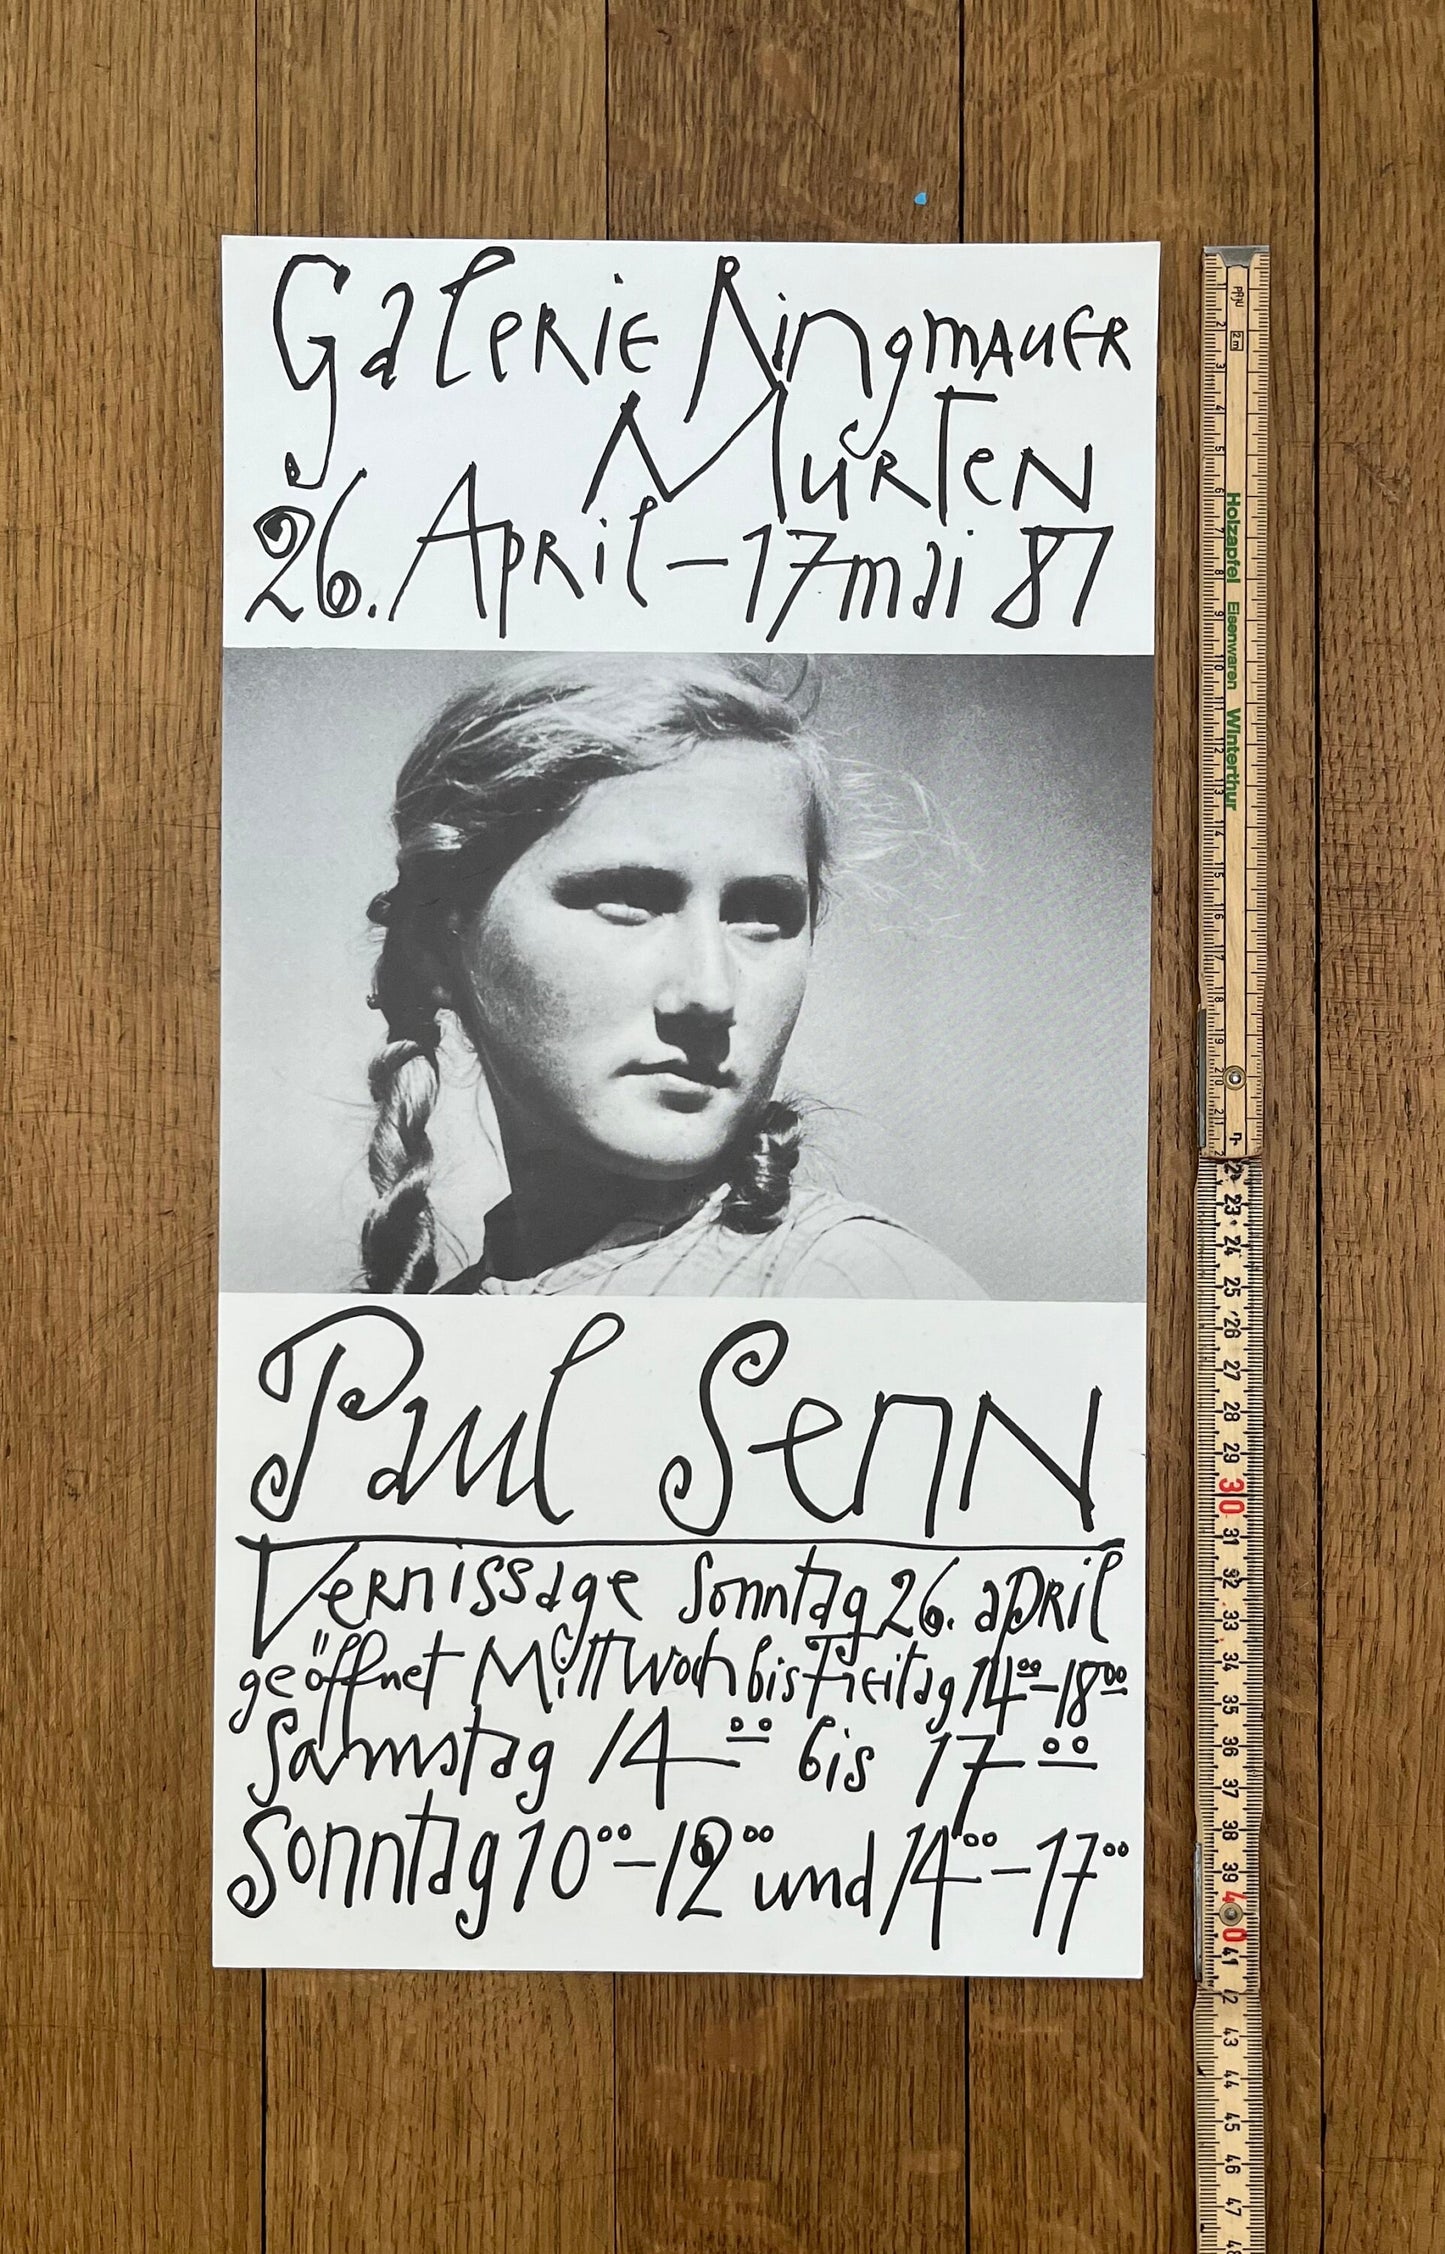 Galerie Ringmauer
Murten
26. April – 17 mai 87
Paul Senn
Vernissage Sonntag 26. april
geöffnet Mittwoch bis Freitag 14⁰⁰–18⁰⁰
Samstag 14⁰⁰ bis 17⁰⁰
Sonntag 10⁰⁰–12⁰⁰ und 14⁰⁰–17⁰⁰
2m
Holzapfel Eisenwaren Winterthur
1 2 3 4 5 6 7 8 9 10 11 12 13 14 15 16 17 18 19 20 21
23 24 25 26 27 28 29 30 31 32 33 34 35 36 37 38 39 40 41 42 43 44 45 46 47